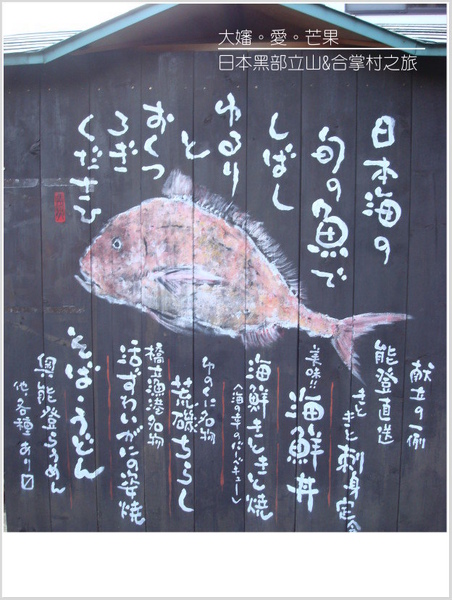 大嬸。愛。芒果
日本黑部立山&合掌村之旅
日本海の
旬の魚で
しばし
ゆるり
と
おくつ
ろぎ
くださひ
献立の一例
能登直送
きと
きと刺身定食
美味!!
海鮮丼
海鮮きときと焼
(海の幸のバーベキュー)
ゆのくに名物
荒磯ちらし
橋立漁港名物
活ずわいがにの姿焼
そば・うどん
奥能登らうめん
他各種あり〼